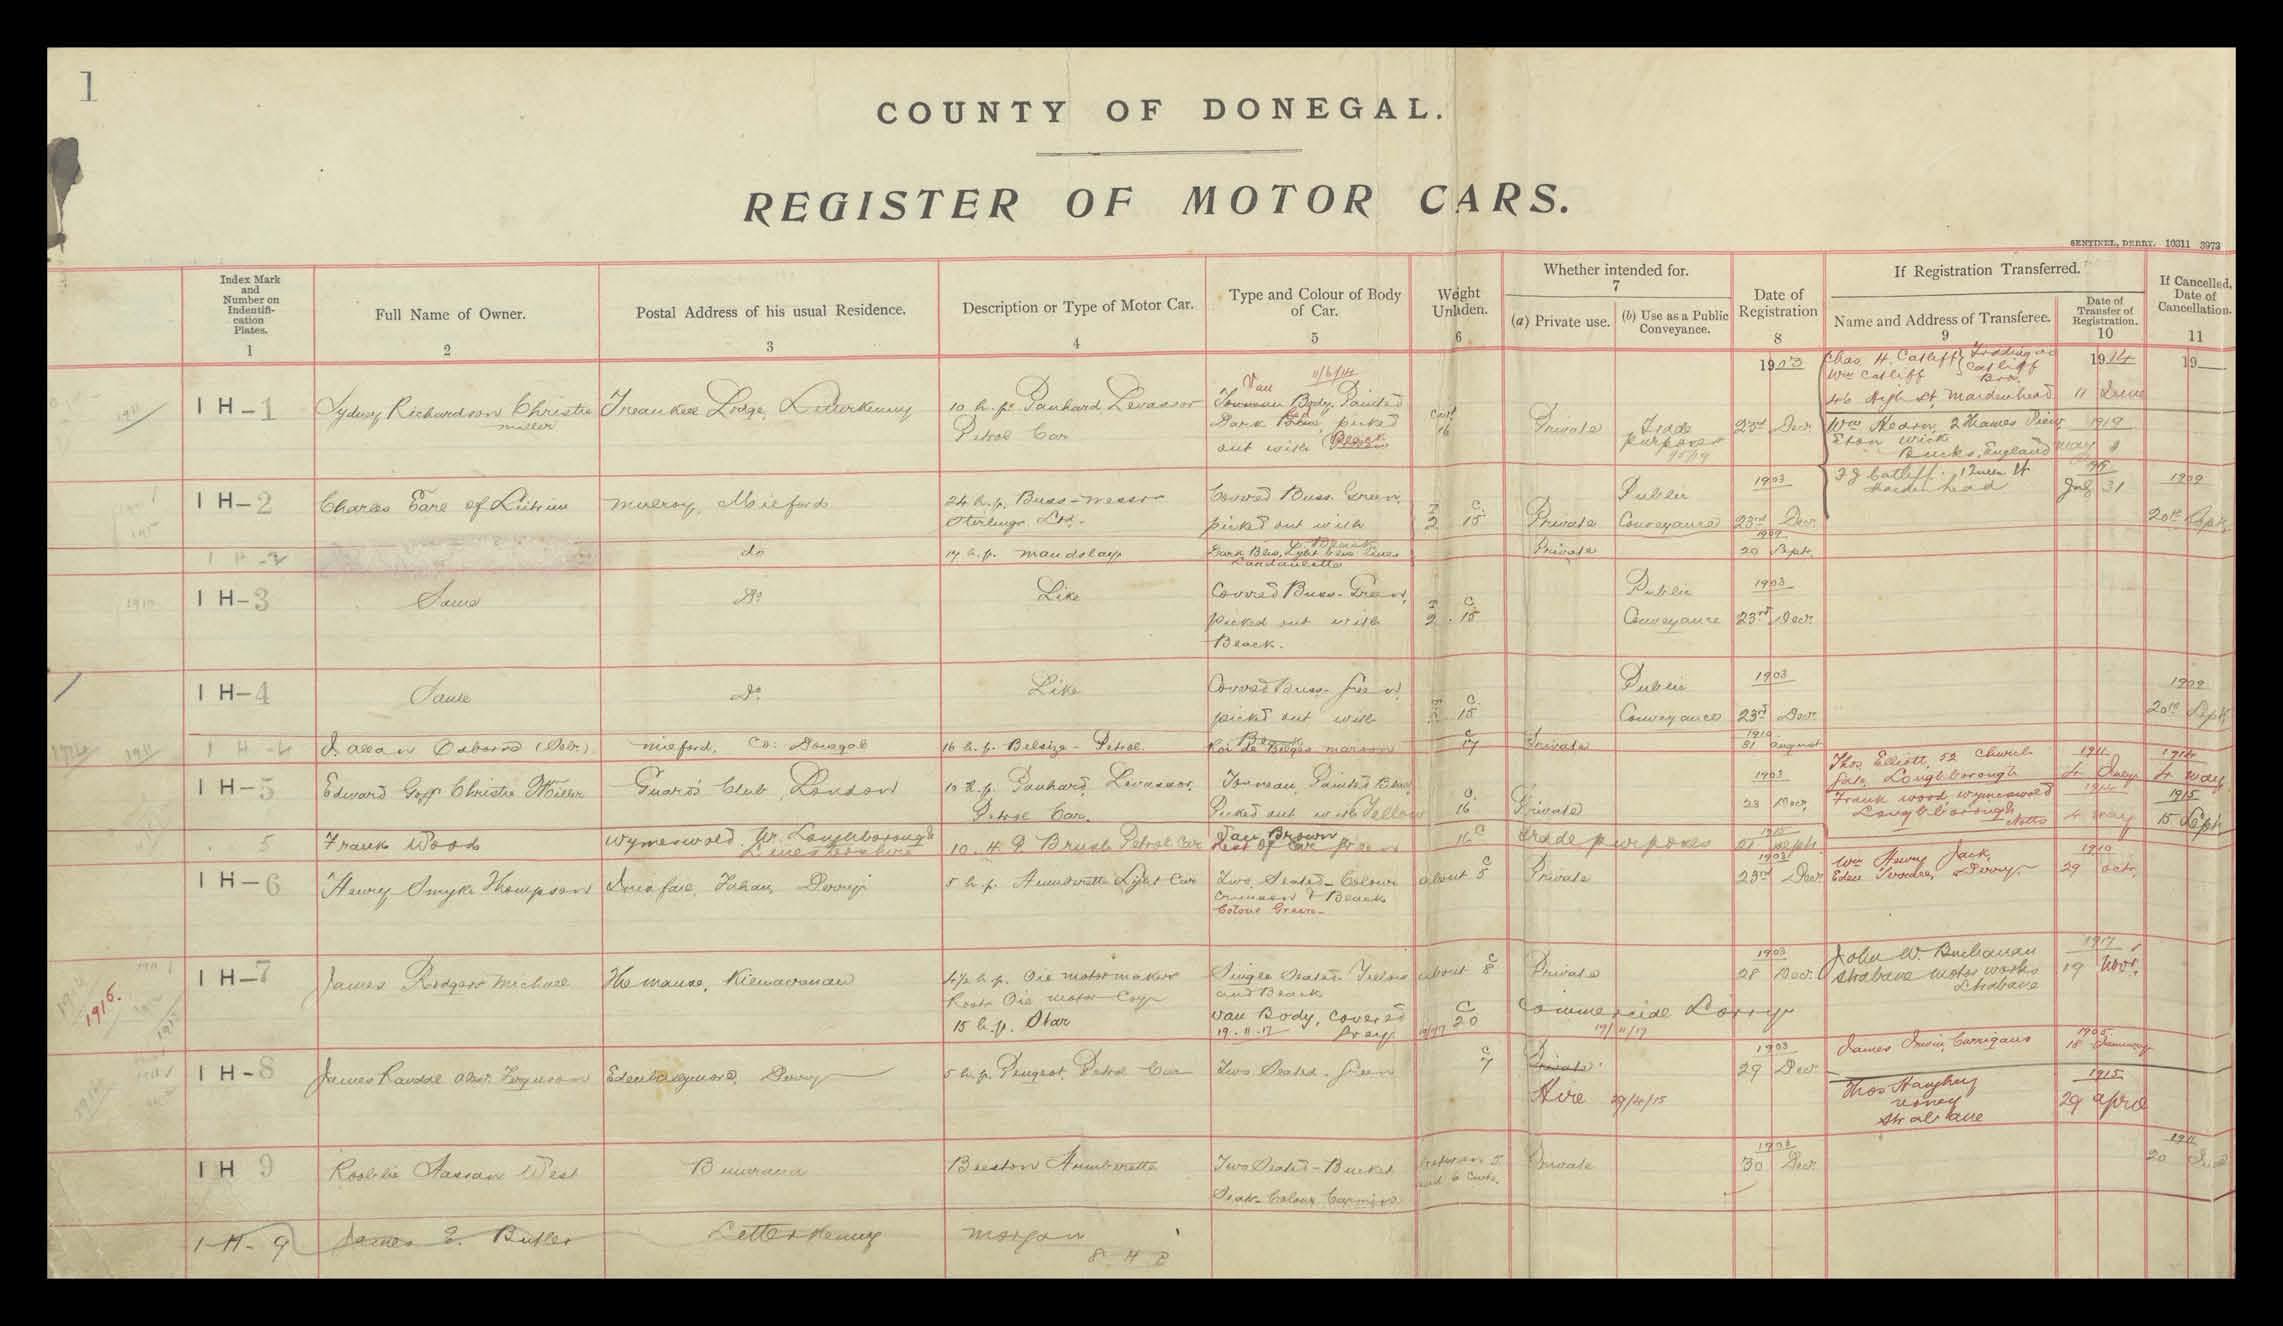 1
COUNTY OF DONEGAL.
REGISTER OF MOTOR CARS.
SENTINEL, DERRY. 10311 3973
Index Mark and Number on Indentifi-cation Plates.
1
Full Name of Owner.
2
Postal Address of his usual Residence.
3
Description or Type of Motor Car.
4
Type and Colour of Body of Car.
5
Weight Unladen.
6
Whether intended for.
7
(a) Private use.
(b) Use as a Public Conveyance.
Date of Registration
8
If Registration Transferred.
Name and Address of Transferee.
9
Date of Transfer of Registration.
10
If Cancelled, Date of Cancellation.
11
1903
1914
19
Chas. H. Catliff Trading as
Wm Catliff Catliff Bros
46 High St. Maidenhead 11 June
1911
IH-1 Sydney Richardson Christie Miller
Lodge, Letterkenny
10 h.p. Panhard Levassor
Petrol Car
Van 11/6/14
Tonneau Body, Painted
Dark Blue, picked
out with
Cwt 16
Private
Trade purposes
9/5/19
23rd Decr
2 Thames View
Eton Wick
Bucks, England
1919
May
Maidenhead
July 31
IH-2 Charles Earl of Leitrim
Mulroy, Milford
24 h.p. Buss
Stirlings Ltd.
Covered Buss. Green,
picked out with
2 15
Private
Public Conveyance
1903
23rd Decr
1909
20th Sept.
IH-2
do
17 h.p. Maudslay
Dark Blue, Light Blue Lines
Landaulette
Private
1909
20 Sept.
1910
IH-3 Same
Do
Like
Covered Buss. Green,
picked out with
Black.
2 . 15
Public Conveyance
1903
23rd Decr.
IH-4 Same
Do
Like
Covered Buss. Green
picked out with
15
Public Conveyance
1903
23rd Decr.
1909
20th Sept
1911
IH-4
Osborne
Milford, Co: Donegal
16 h.p. Belsize - Petrol.
Roi de Belges maroon
17
Private
1910
31 August
IH-5 Edward Goff Christie Miller
Guards Club, London
10 h.p. Panhard, Levassor,
Petrol Car.
Tonneau, Painted Blue
Picked out with Yellow
16
Private
1903
23 Decr.
Thos. Elliott, 52 Church
Gate, Loughborough
1911
4 July
1914
4 May
Frank Wood Wymeswold
Loughborough
Notts
1914
4 May
1915
15 Sept
5 Frank Wood
Wymeswold. Nr. Loughborough
10 H P Brush Petrol Car
Van Brown
Rest of Car green
16 C
Trade purposes
1915
Sept.
IH-6 Henry Smyth Thompson
Derry
5 h.p. Humberette Light Car
Two Seated - Colour
Crimson & Black
Colour Green -
about 5
Private
1903
23rd Decr
Wm Henry Jack,
Eden Terrace, Derry
1910
29 Octr.
1916.
IH-7 James Rodgers Michael
The Manse, Killwarannan
4½ h.p. Oil motor makers
Oil Motor Coy
15 h.p. Star
Single Seated. Yellow
and Black
Van Body, Covered
19.11.17 Grey
about 8
C 20
Private
Commercial Lorry
19/11/17
1903
28 Decr.
John W. Buchanan
Strabane Motor works
Strabane
1917
19 Novr.
IH-8 James Randal Ferguson
Edenballymore, Derry
5 h.p. Peugeot, Petrol Car
Two Seated. Green
7
Private
Hire 29/4/15
1903
29 Decr
James Irwin, Carrigans
1905
18 January
Thos Haughey
Urney
Strabane
1915
29 April
IH 9 Robbie West
Buncrana
Beeston Humberette
Two Seated - Bucket
Seats. Colour Carmine
between 5
and 6 Cwts.
Private
1903
30 Decr.
1911
20
IH-9 James E. Butler
Letterkenny
Morgan
8 H P